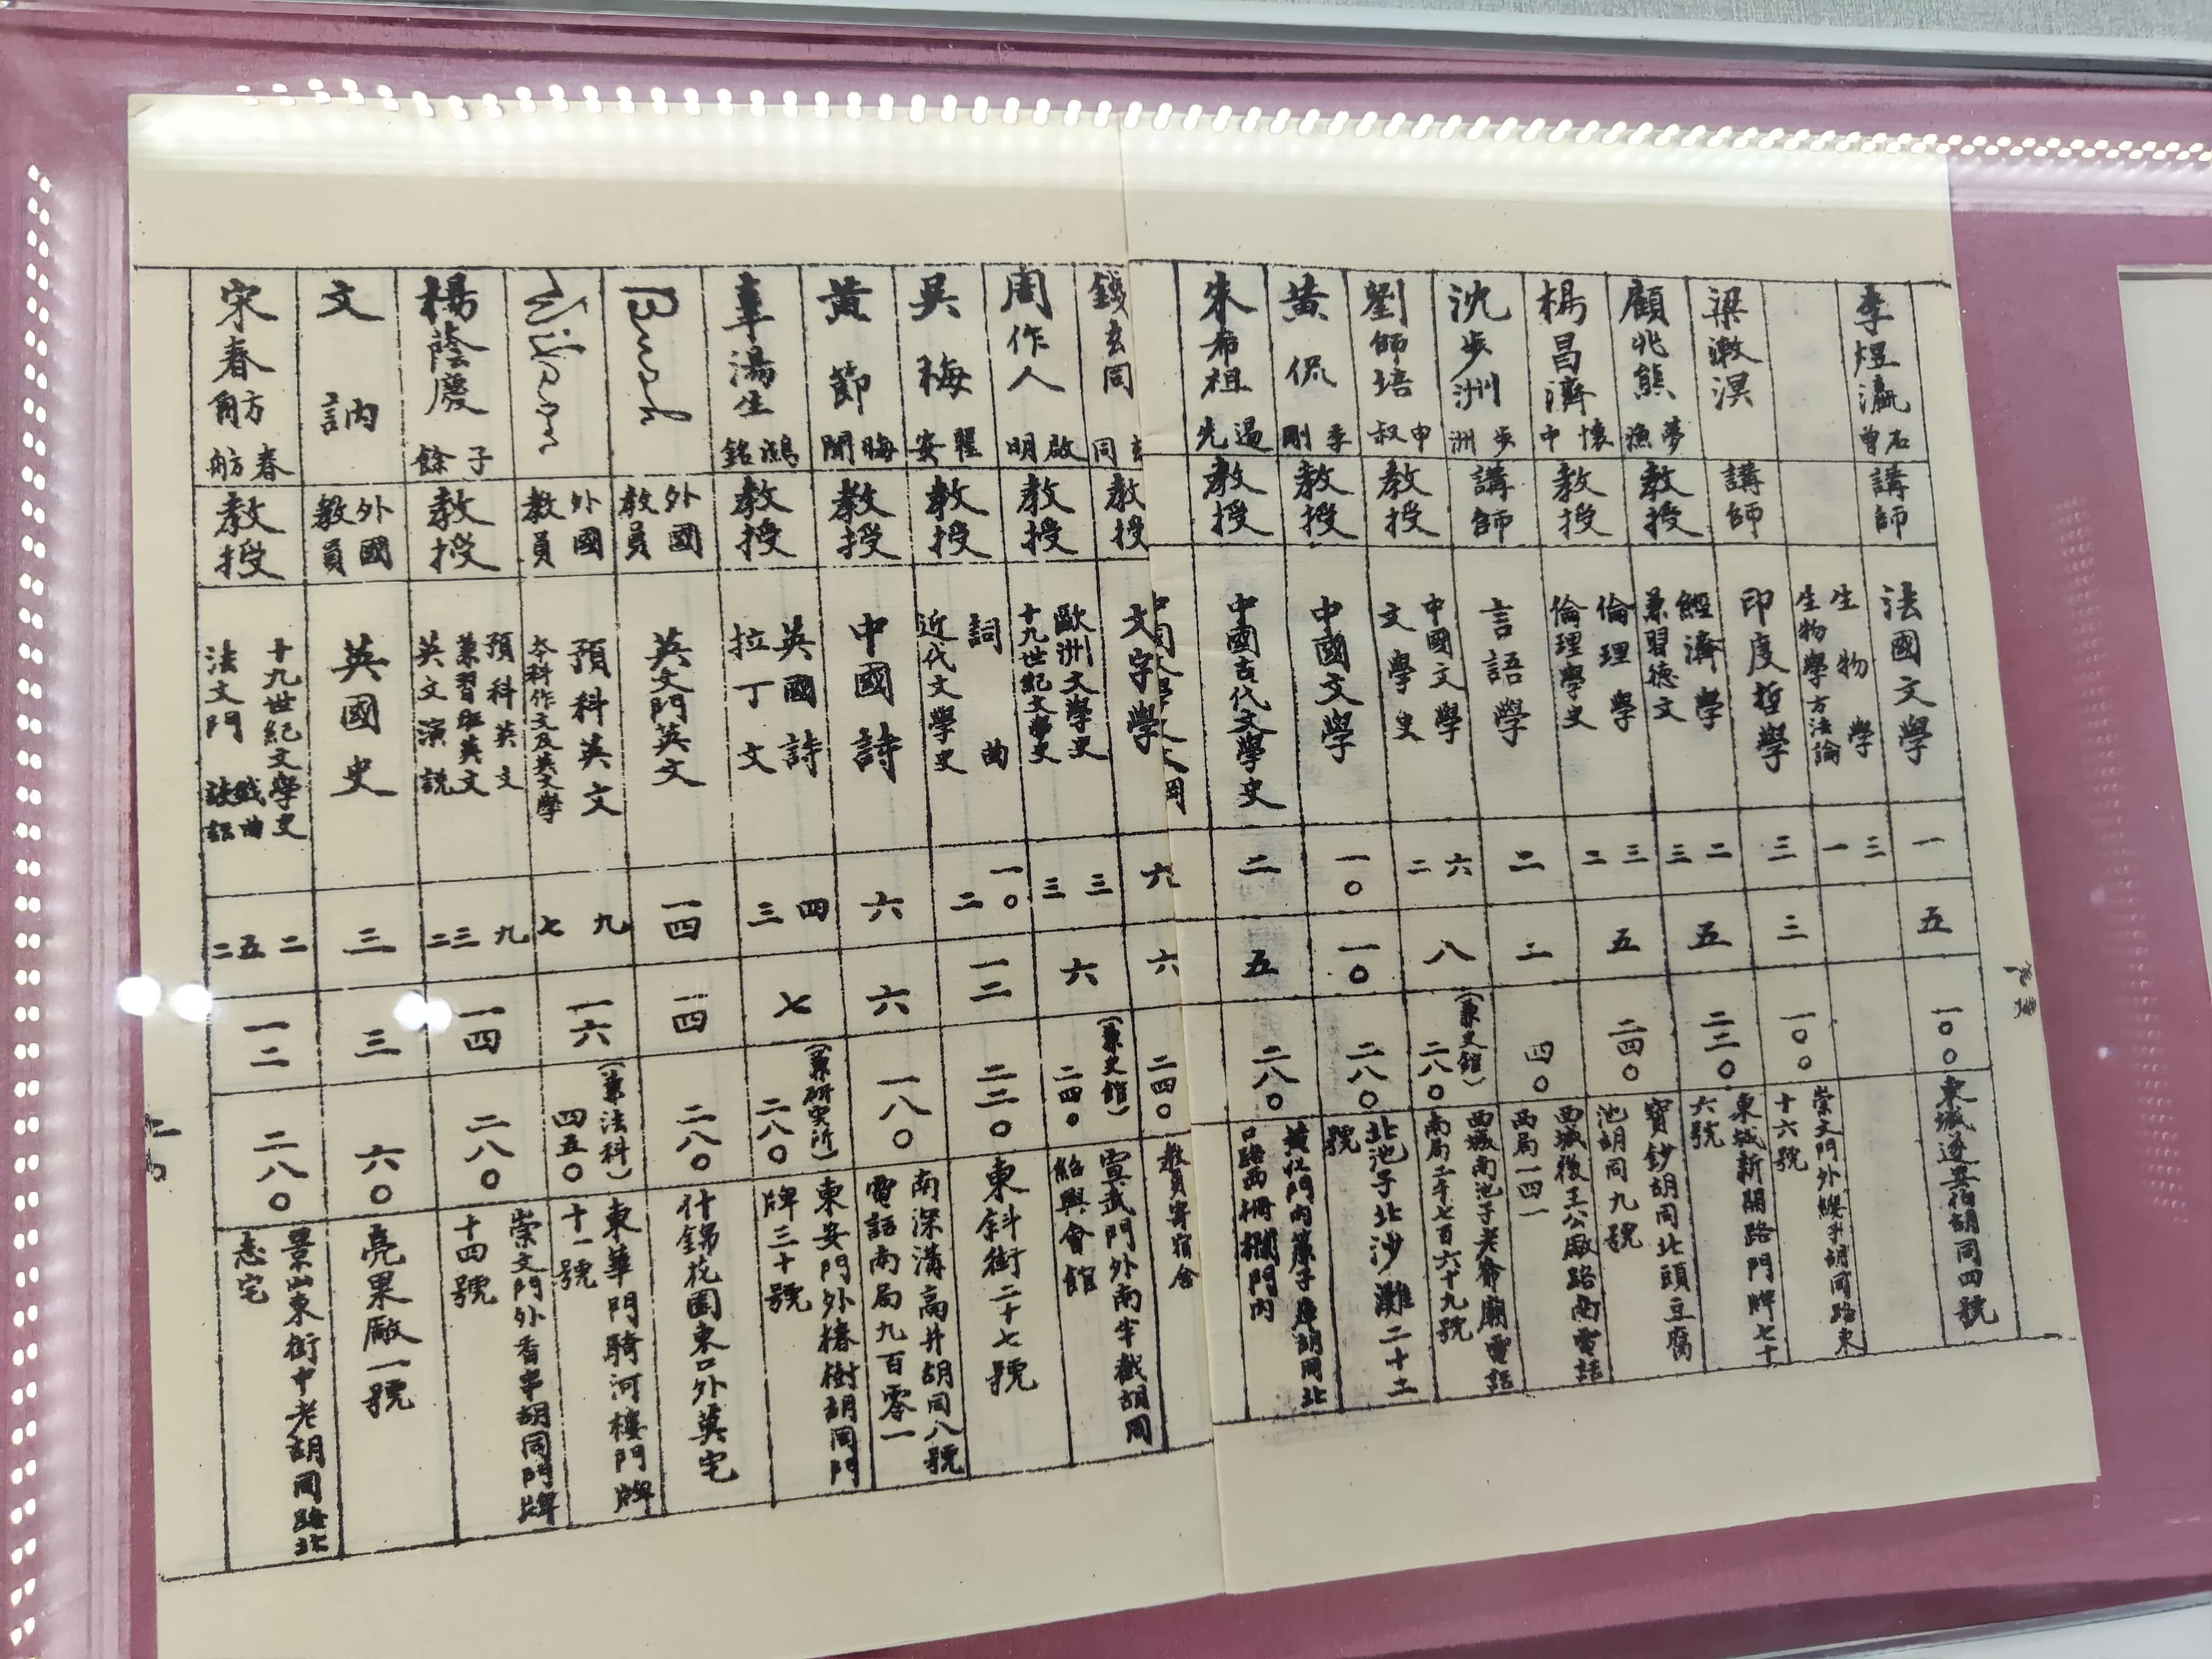 李煜瀛 石曾
講師
法國文學
一
五
一〇〇
東城遂安伯胡同四號
生物學
生物學方法論
三
一
梁漱溟
講師
印度哲學
三
三
一〇〇
崇文門外纓子胡同路東
十六號
顧兆熊 夢漁
教授
經濟學
兼習德文
二
三
五
二三〇
東城新開路門牌七十
六號
楊昌濟 懷中
教授
倫理學
倫理學史
三
二
五
二四〇
寶鈔胡同北頭豆腐
池胡同九號
沈步洲 步洲
講師
言語學
二
二
四〇
西城後王公廠路南電話
西局一四一
劉師培 申叔
教授
中國文學
文學史
六
二
八
(兼史館)
二八〇
西城南池子老爺廟電話
南局二千七百六十九號
黃侃 季剛
教授
中國文學
一〇
一〇
二八〇
北池子北沙灘二十二
號
朱希祖 逷先
教授
中國古代文學史
二
五
二八〇
黃化門內簾子庫胡同北
口路西柵欄門內
錢玄同
教授
文字學
六
六
二四〇
教員寄宿舍
周作人 啟明
教授
歐洲文學史
十九世紀文學史
三
三
六
(兼史館)
二四〇
宣武門外南半截胡同
紹興會館
吳梅 瞿安
教授
詞曲
近代文學史
一〇
二
一二
二三〇
東斜街二十七號
黃節 晦聞
教授
中國詩
六
六
一八〇
南深溝高井胡同八號
電話南局九百零一
辜湯生 鴻銘
教授
英國詩
拉丁文
四
三
七
(兼研究所)
二八〇
東安門外椿樹胡同門
牌三十號
外國
教員
英文門英文
一四
一四
二八〇
什錦花園東口外莫宅
外國
教員
預科英文
本科作文及英文學
九
七
一六
(兼法科)
四五〇
東華門騎河樓門牌
十一號
楊蔭慶 子餘
教授
預科英文
兼習班英文
英文演説
九
三
二
一四
二八〇
崇文門外香串胡同門牌
十四號
文訥
外國
教員
英國史
三
三
六〇
亮果厰一號
宋春舫 春舫
教授
十九世紀文學史
法文門 戲曲
法語
二
五
二
一二
二八〇
景山東街中老胡同路北
志宅